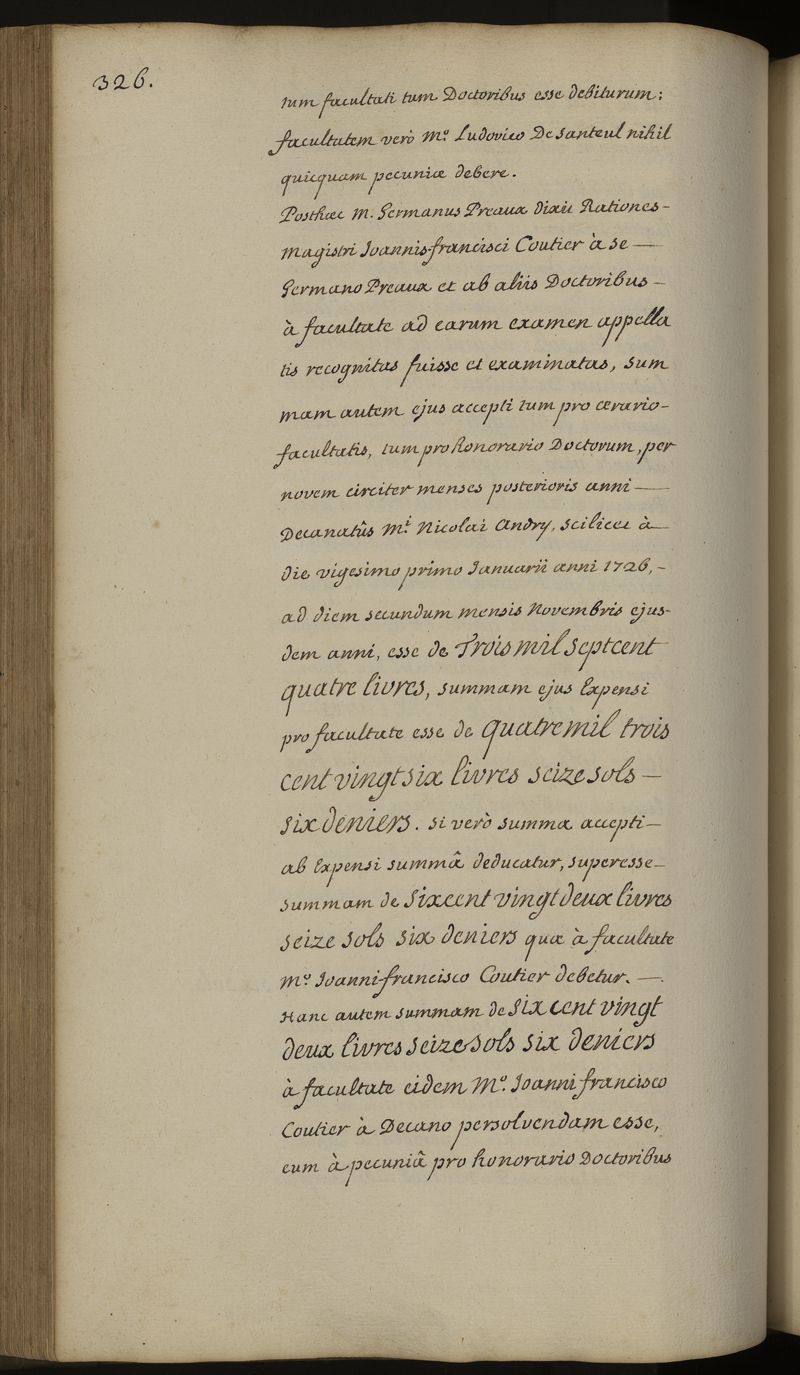 326.
tum facultati tum Doctoribus esse debiturum;
facultatem verò M.º Ludovico De Santeul nihil
quicquam pecuniæ debere.
Posthæc M. Germanus Preaux dixit Rationes-
Magistri Joannis-francisci Coutier à se —
Germano Preaux et ab aliis Doctoribus —
à facultate ad earum examen appella
tis recognitas fuisse et examinatas, Sum
mam autem ejus accepti tum pro ærario-
facultatis, tum pro honorario Doctorum, per
novem circiter menses posterioris anni —
Decanatûs M.i Nicolai Andry, scilicet à —
die vigesimo primo Januarii anni 1726, -
ad diem secundum mensis Novembris ejus-
dem anni, esse de Trois mil Septcent
quatre livres, summam ejus Expensi
pro facultate esse de quatre mil trois
cent vingt six livres seize sols —
six deniers. si verò summa accepti —
ab Expensi summâ deducatur, superesse —
summam de Six cent vingt deux livres
seize sols six deniers quæ à facultate
M.º Joanni-francisco Coutier debetur. —.
Hanc autem summam de Six cent vingt
deux livres seize sols six deniers
à facultate eidem M.º Joanni francisco
Coutier à Decano persolvendam esse,
cum à pecuniâ pro honorario Doctoribus